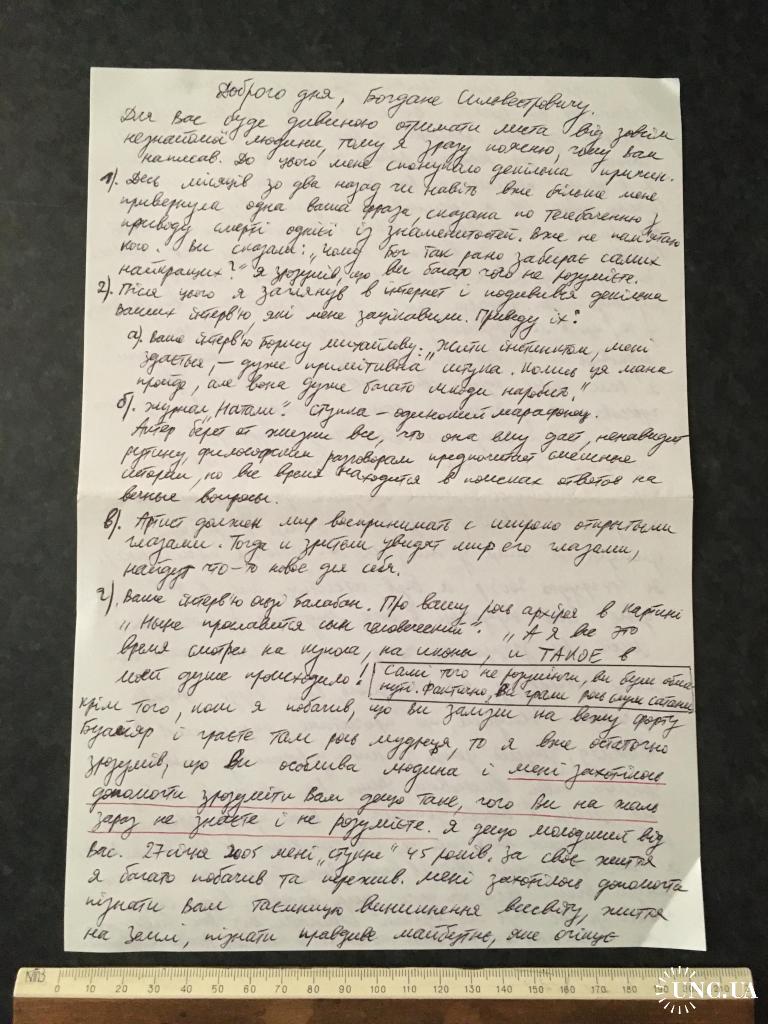 Доброго дня, Богдане Сильвестровичу.
Для Вас буде дивиною отримати листа від зовсім
незнайомої людини, тому я зразу поясню, чому Вам
написав. До цього мене спонукало декілька причин.
1). Десь місяців зо два назад чи навіть вже більше мене
привернула одна ваша фраза, сказана по телебаченню з
приводу смерті однієї із знаменитостей. Вже не пам'ятаю
кого. Ви сказали: „Чому Бог так рано забирає самих
найкращих?" Я зрозумів, що Ви багато чого не розумієте.
2). Після цього я заглянув в інтернет і подивився декілька
Ваших інтерв'ю, які мене зацікавили. Приведу їх:
а). Ваше інтерв'ю Борису Михайлову: „Жити інстинктом, мені
здається, – дуже примітивна штука. Колись ця мана
пройде, але вона дуже багато шкоди наробить."
б). Журнал „Натали". Ступка – одинокий марафонец.
Актер берёт от жизни все, что она ему дает, ненавидит
рутину, философским разговорам предпочитает смешные
истории, но все время находится в поисках ответов на
вечные вопросы.
в). Артист должен мир воспринимать с широко открытыми
глазами. Тогда и зрители увидят мир его глазами,
найдут что-то новое для себя.
г). Ваше інтерв'ю Балабан. Про вашу роль архірея в картині
„Ныне прославится сын человеческий". „А я все это
время смотрел на купола, на иконы, и ТАКОЕ в
моей душе происходило! Самі того не розуміючи, ви були обма-
нуті. Фактично, Ви грали роль слуги сатани.
Крім того, коли я побачив, що Ви залізли на вежу форту
Буаяр і граєте там роль мудреця, то я вже остаточно
зрозумів, що Ви особлива людина і мені захотілось
допомогти зрозуміти Вам дещо таке, чого Ви на жаль
зараз не знаєте і не розумієте. Я дещо молодший від
Вас. 27 січня 2005 мені „стукне" 45 років. За своє життя
я багато побачив та пережив. Мені захотілось допомогти
пізнати Вам таємницю виникнення всесвіту, життя
на Землі, пізнати правдиве майбутнє, яке очікує
0 10 20 30 40 50 60 70 80 90 100 110 120 130 140 150 160 170 180 190 200 210
UNC.UA